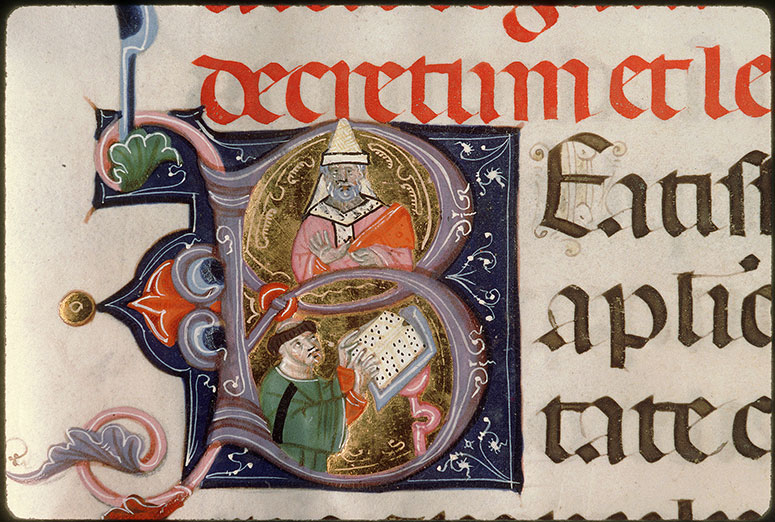 decretum et le
BEatiſſ
aplic
tate c